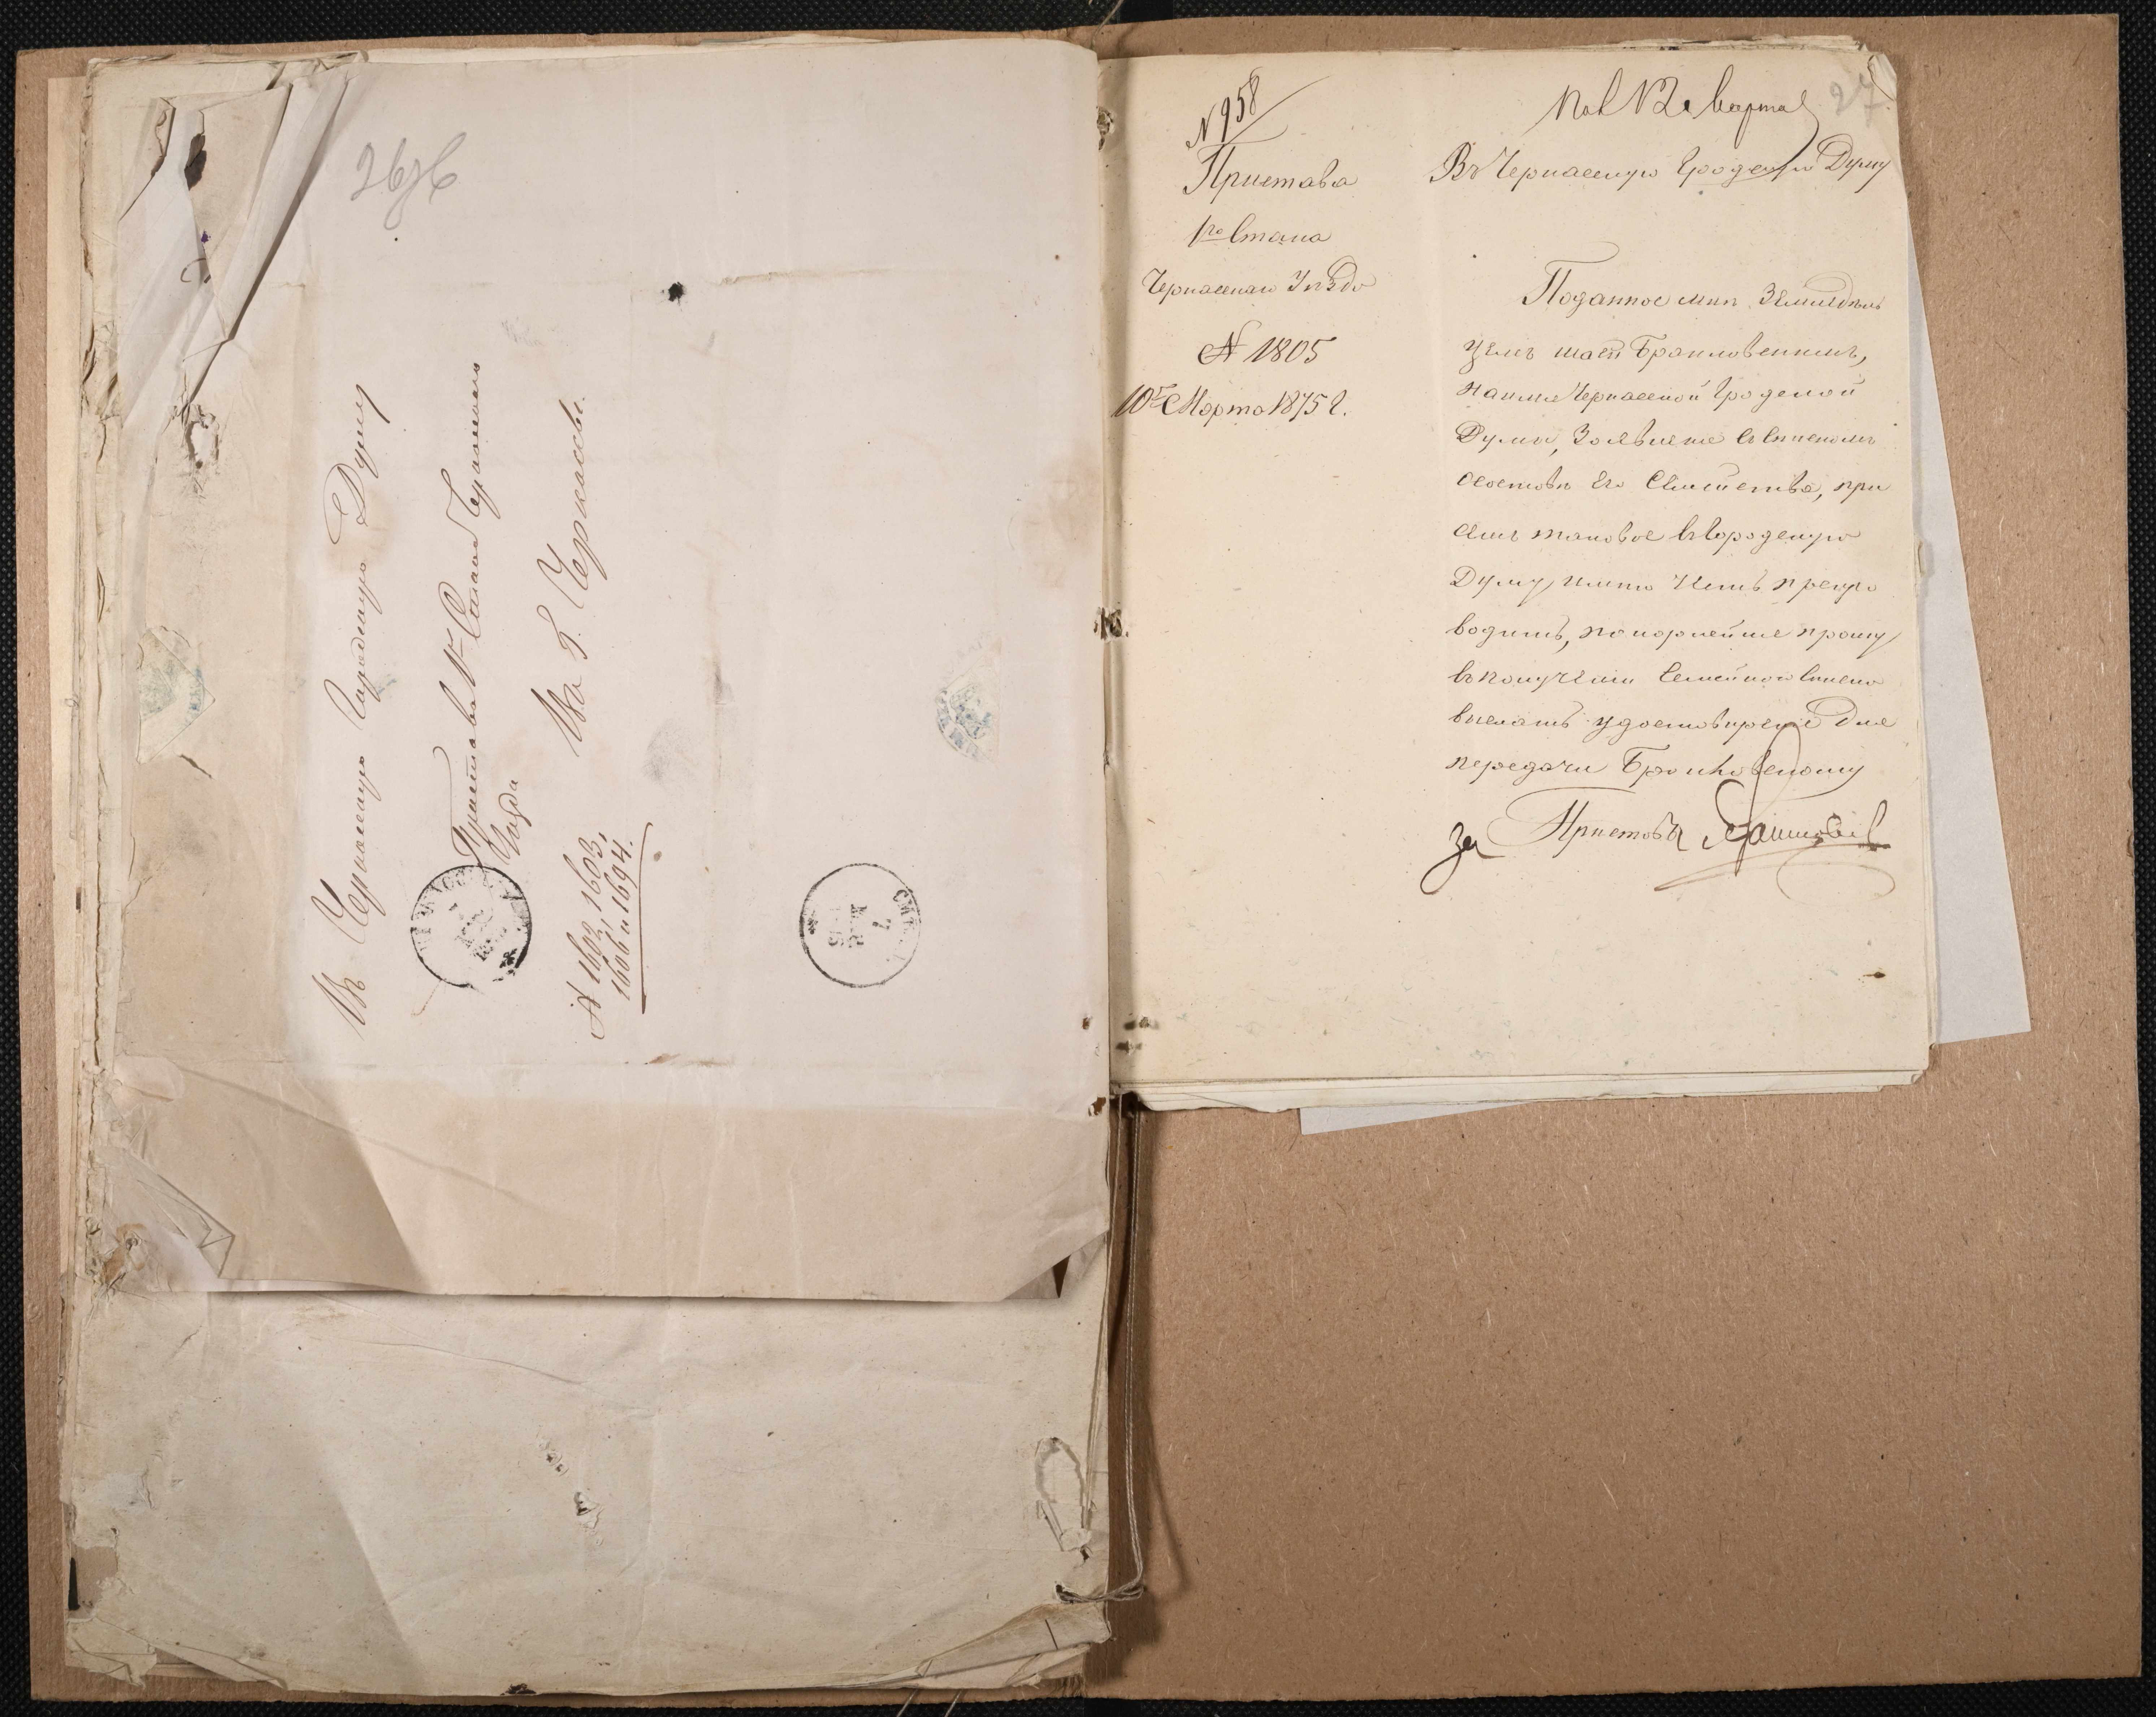 26 об
Въ Черкасскую Городскую Думу
Пристава 1го Стана Черкасскаго
Уѣзда
Въ Г. Черкассы.
№ 1602, 1603,
1606 и 1694.
№ 958
Пристава
1го Стана
Черкасскаго Уѣзда
№ 1805
10го Марта 1875 г.
Пол 12 Марта
27
Въ Черкасскую Городскую Думу
Поданное мнѣ Земледѣль
цемъ Браиловскимъ,
на имя Черкасской Городской
Думы, Заявление съ Спискомъ
о составѣ Его Семейства, при
семъ таковое въ Городскую
Думу препро
водить, покорнейше прошу
въ получении Семейнаго Списка
выслать удостоверение Для
передачи Браиловскому
За Пристава